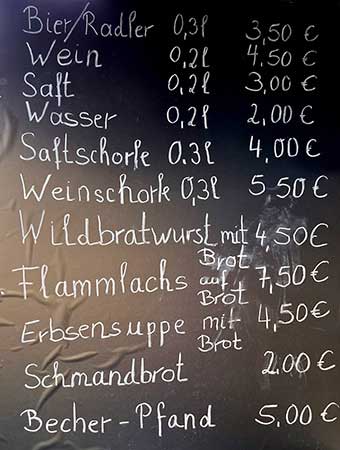 Bier/Radler 0,3l 3,50 €
Wein 0,2l 4,50 €
Saft 0,2l 3,00 €
Wasser 0,2l 2,00 €
Saftschorle 0.3l 4,00 €
Weinschorle 0,3l 5,50 €
Wildbratwurst mit Brot 4,50€
Flammlachs auf Brot 7,50€
Erbsensuppe mit Brot 4,50€
Schmandbrot 2,00 €
Becher-Pfand 5,00 €